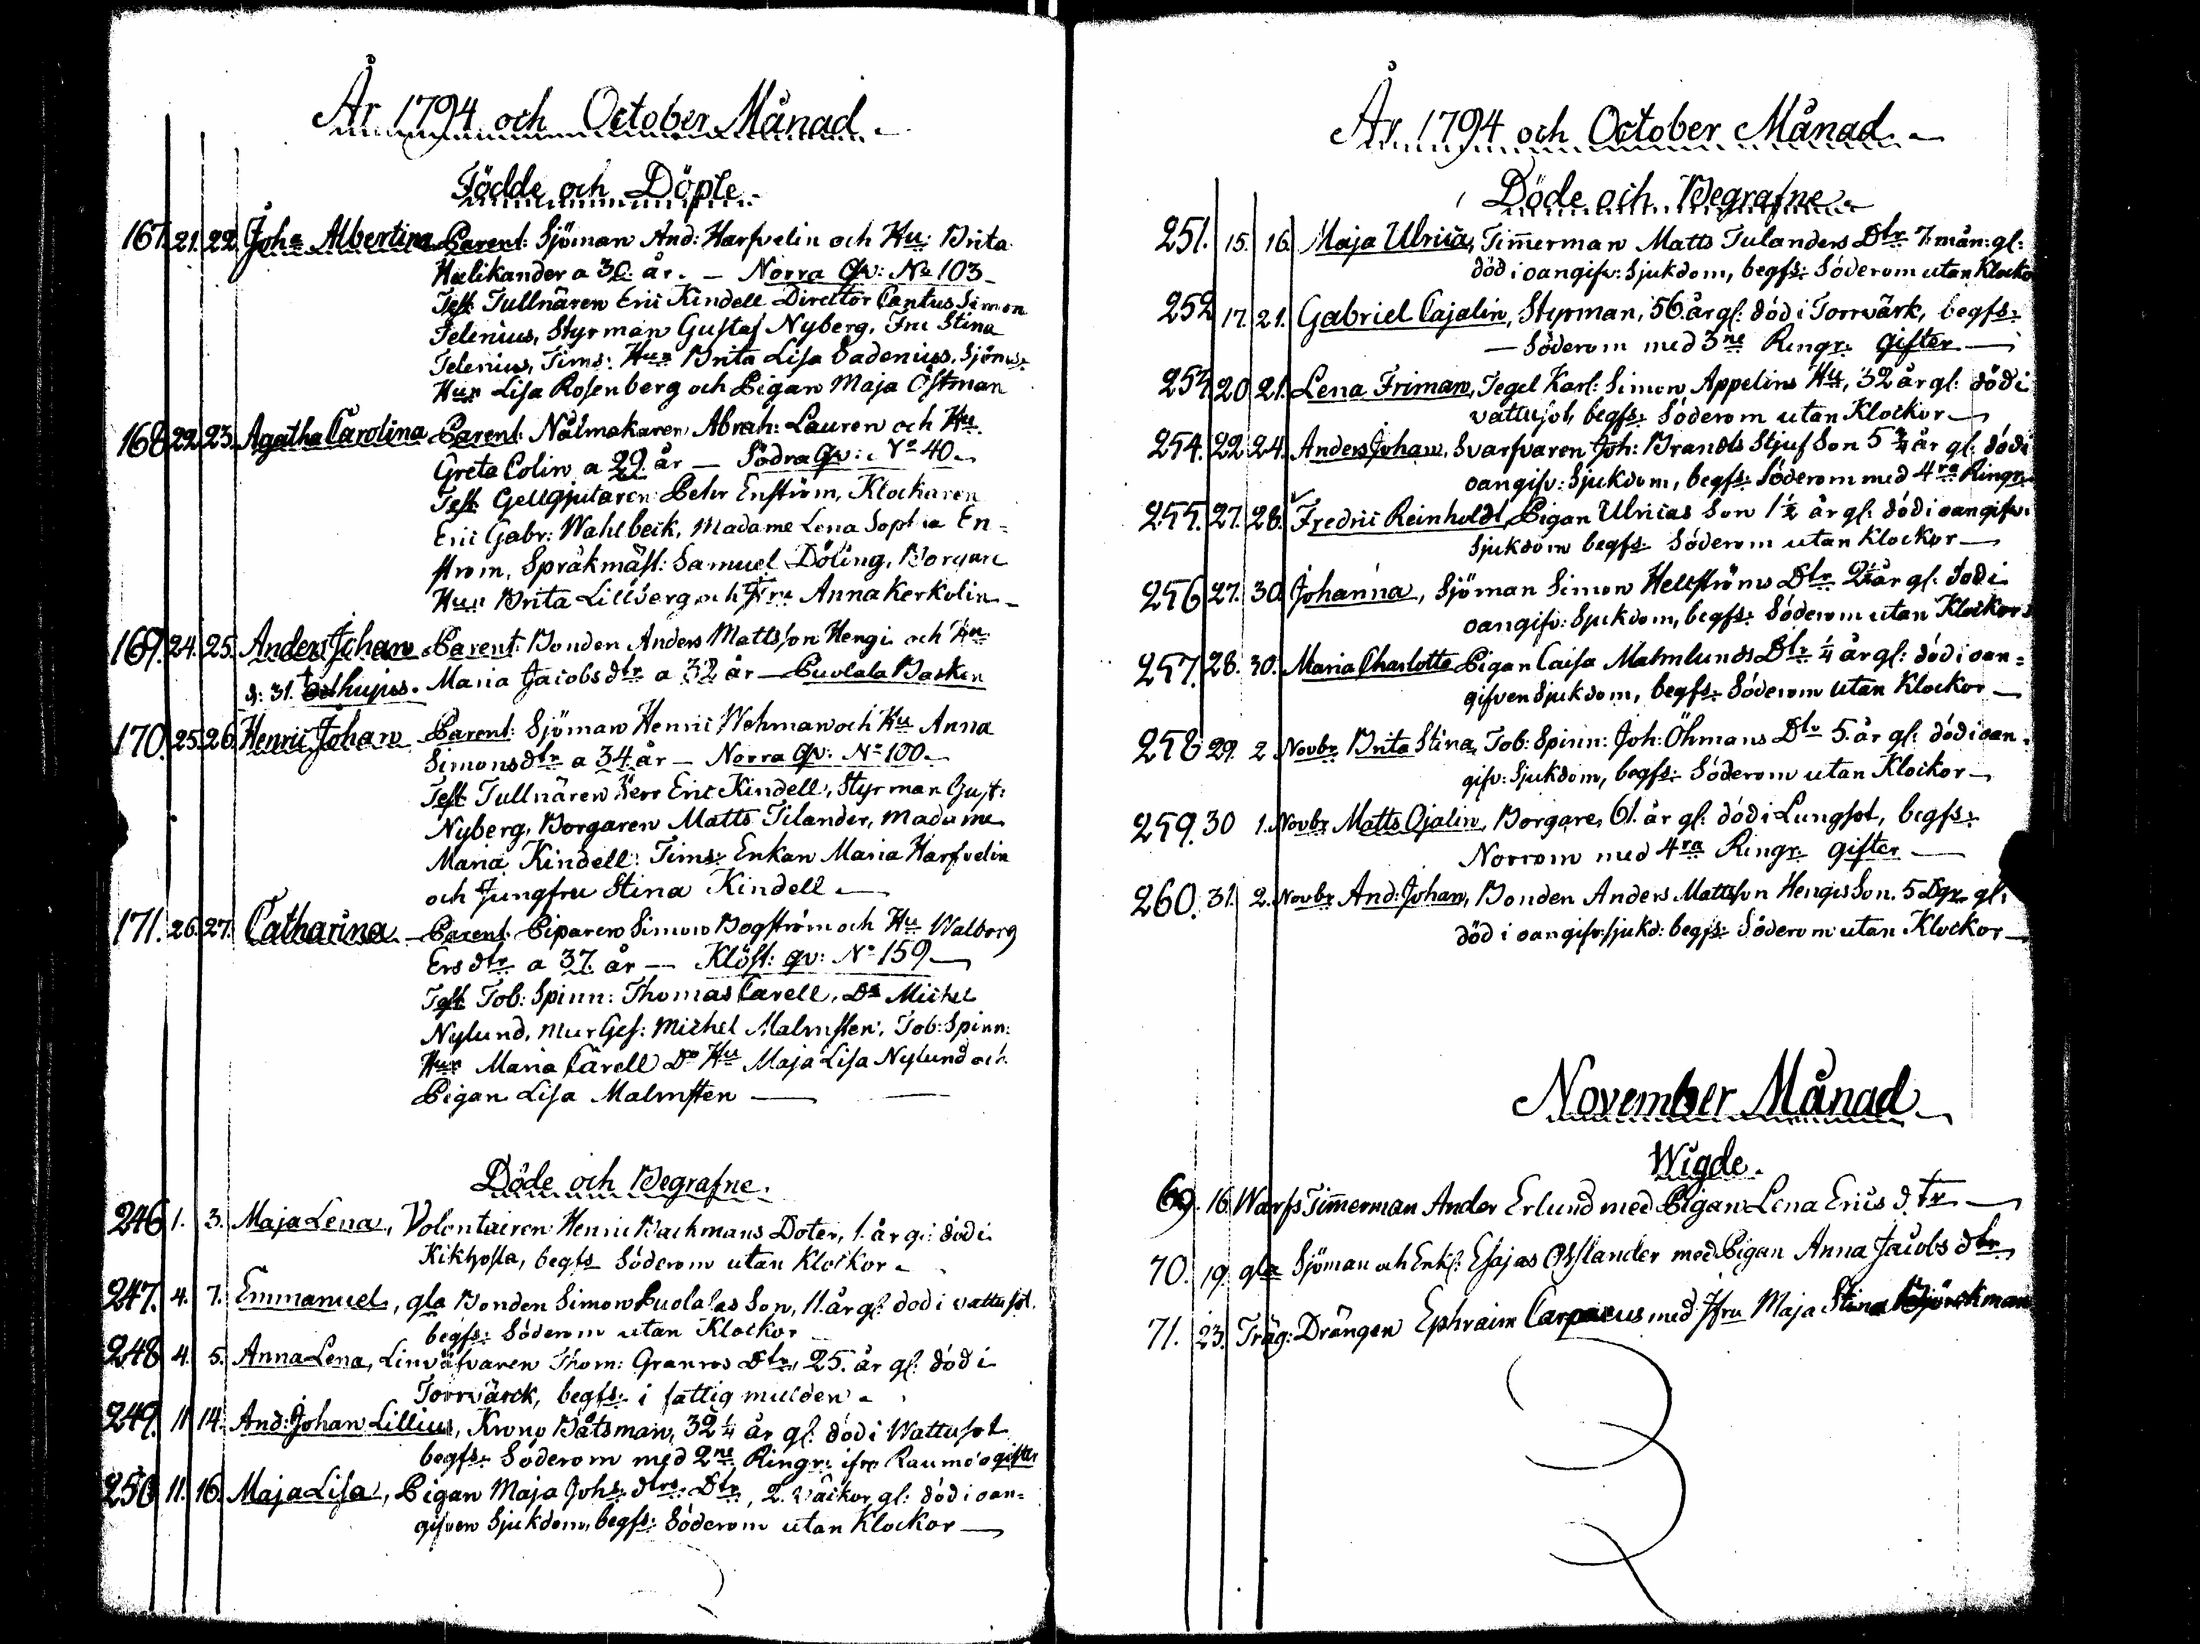 År 1794 och October Månad.
Födde och Döpte.
167. 21. 22. Joha Albertina Parent: Sjöman And: Harfvelin och Hu: Brita
Helikander a 30 år. — Norra Qv: No 103
Test: Tullnären Eric Kindell Director Cantus Simon
Telenius, Styrman Gustaf Nyberg, Fru Stina
Telenius, Tims: Hus Brita Lisa Sadenius, Sjöms:
Hus Lisa Rosenberg och Pigan Maja Östman
168 22. 23. Agatha Carolina Parent: Nålmakaren Abrah: Lauren och Hu.
Greta Colin a 29 år — Södra Qv: No 40.
Test: Gellgjutaren Pehr Enström, Klockaren
Eric Gabr: Wahlbeck, Madame Lena Sophia En=
ström, Språkmäst: Samuel Döling, Borgare
Hus Brita Lillberg och Fru Anna Kerkolin
169. 24. 25. Anders Johan Parent: Bonden Anders Mattsson Hengi och Hu
d: 31. hujus. Maria Jacobs dtr a 32 år — Puolala Backen
170. 25. 26. Henric Johan Parent: Sjöman Henric Wehman och Hu Anna
Simons dtr a 34 år — Norra Qv: No 100.
Test Tullnären Herr Eric Kindell, Styrman Gust:
Nyberg, Borgaren Matts Tilander, Madame
Maria Kindell: Tims: Enkan Maria Harfvelin
och Jungfru Stina Kindell
171. 26. 27. Catharina Parent: Piparen Simon Bogström och Hu Walborg
Ers dtr a 37 år — Klöst: qv: No 159
Test Tob: Spinn: Thomas Carell, Do Michel
Nylund, Mur Ges: Michel Malmsten, Tob: Spinn:
Hus Maria Carell Do Hu Maja Lisa Nylund och
Pigan Lisa Malmsten
Döde och Begrafne.
246 1. 3. Maja Lena, Volontairen Henric Bachmans Doter, 1. år gl: död i
Kikhosta, begfs Söderom utan Klockor
247. 4. 7. Emmanuel, gla Bonden Simon Puolalas Son, 11. år gl: död i vattusot.
begfs: Söderom utan Klockor
248 4. 5. Anna Lena, Linväfvaren Thom: Granros Dtr, 25. år gl: död i
Torrvärck, begfs: i fattig mulden
249. 11 14. And: Johan Lillius, Krono Båtsman, 32 1/4 år gl: död i Wattusot
begfs: Söderom med 2ne Ringr: ifrå Raumo o gifter
250 11. 16. Maja Lisa, Pigan Maja Johs: dtrs Dtr, 2. väckor gl: död i oan=
gifven Sjukdom, begfs: Söderom utan Klockor
År 1794 och October Månad.
Döde och Begrafne
251. 15. 16. Maja Ulrica, Timmerman Matts Tulanders Dtr 7. mån: gl:
död i oangifv: Sjukdom, begfs: Söderom utan Klockor
252 17. 21. Gabriel Cajalin, Styrman, 56. år gl: död i Torrvärk, begfs:
— Söderom med 3ne Ringr: Gifter —
253 20 21. Lena Friman, Tegel Karl: Simon Appelins Hu, 32 år gl: död i
vattusot, begfs: Söderom utan Klockor
254. 22 24. Anders Johan, Svarfvaren Joh: Brands Stjuf Son 5 3/4 år gl: död i
oangifv: Sjukdom, begfs: Söderom med 4ra Ringr:
255. 27. 28. Fredric Reinholdt, Pigan Ulricas Son 1 1/2 år gl: död i oangifv:
Sjukdom begfs: Söderom utan Klockor
256 27. 30. Johanna, Sjöman Simon Hellströms Dtr 2 1/2 år gl: död i
oangifv: Sjukdom, begfs: Söderom utan Klockor
257. 28. 30. Maria Charlotta Pigan Caisa Malmlunds Dtr 1/4 år gl: död i oan=
gifven Sjukdom, begfs: Söderom utan Klockor
258 29. 2 Novbr Brita Stina, Tob: Spinn: Joh: Öhmans Dtr 5. år gl: död i oan=
gifv: Sjukdom, begfs: Söderom utan Klockor
259. 30 1. Novbr Matts Ojalin, Borgare, 61. år gl: död i Lungsot, begfs:
Norrom med 4ra Ringr: gifter
260. 31. 2. Novbr And: Johan, Bonden Anders Mattsson Hengis Son. 5 Dgr gl:
död i oangifv: sjukd: begfs: Söderom utan Klockor
November Månad
Wigde.
69. 16. Warfs Timmerman Ander Erlund med Pigan Lena Erics dtr
70. 19. gla Sjöman och Enkl: Esajas Osslander med Pigan Anna Jacobs dtr
71. 23. Träg: Drängen Ephraim Carpaeus med Jfru Maja Stina Björckman